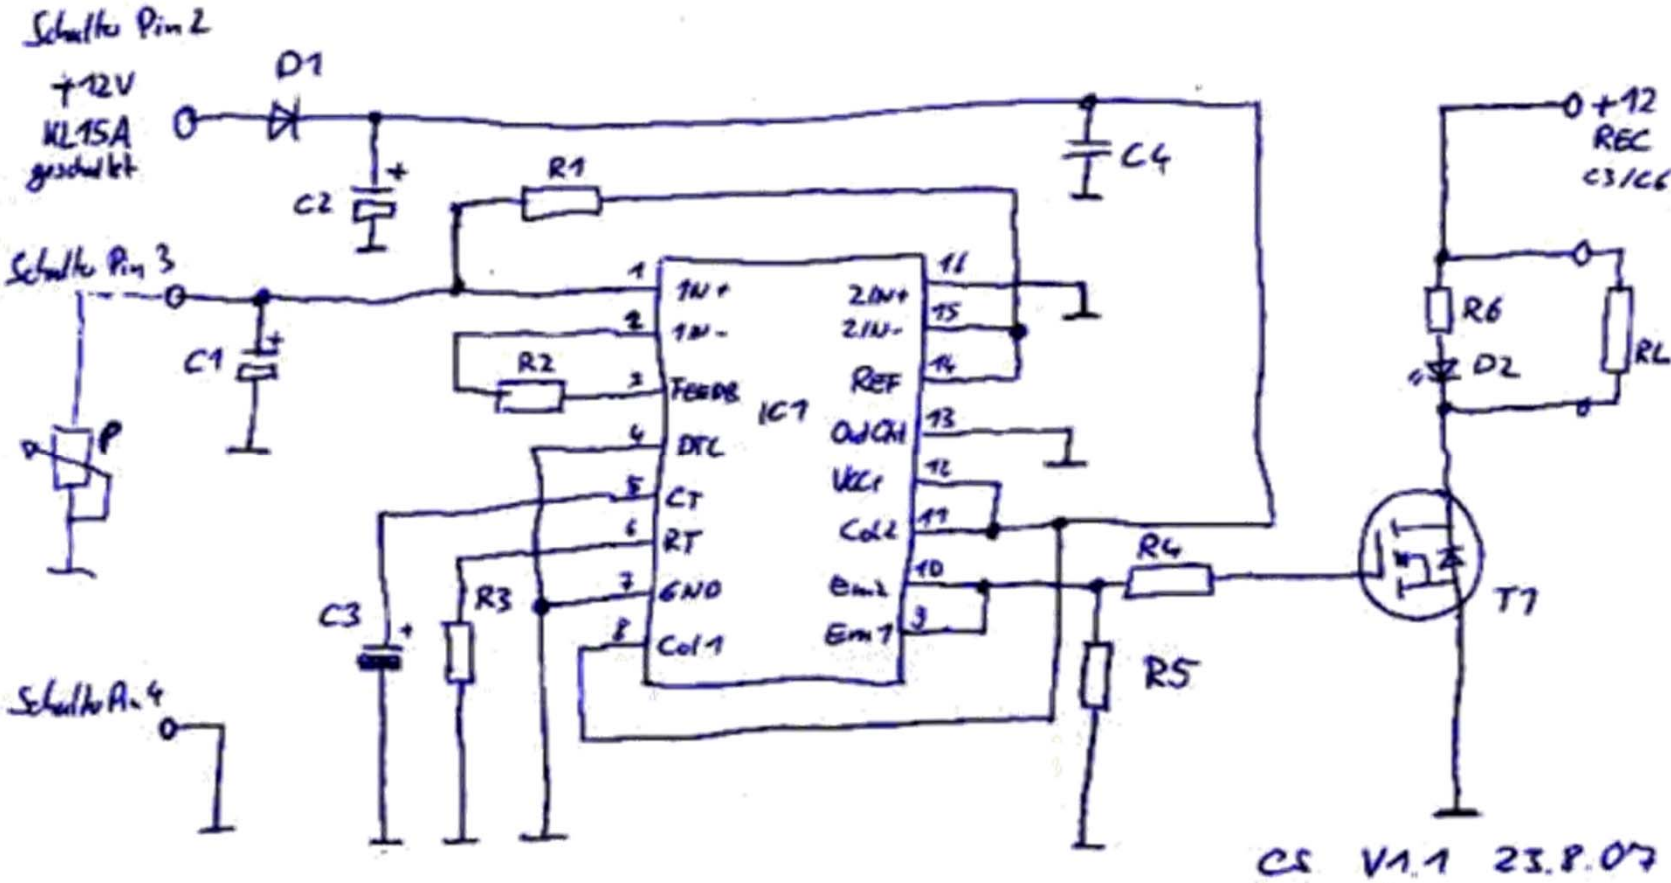 Schalter Pin 2
+12V
KL15A
geschaltet
D1
C2
+
R1
C4
+12
REC
C3/C6
Schalter Pin 3
C1
+
P
R2
IC1
1 1N+
2 1N-
3 FEEDB
4 DTC
5 CT
6 RT
7 GND
8 Col1
16 2IN+
15 2IN-
14 REF
13 OutCtl
12 VCC
11 Col2
10 Em2
9 Em1
R6
D2
RL
R4
T1
C3
+
R3
R5
Schalter Pin 4
CS V1.1 23.8.07